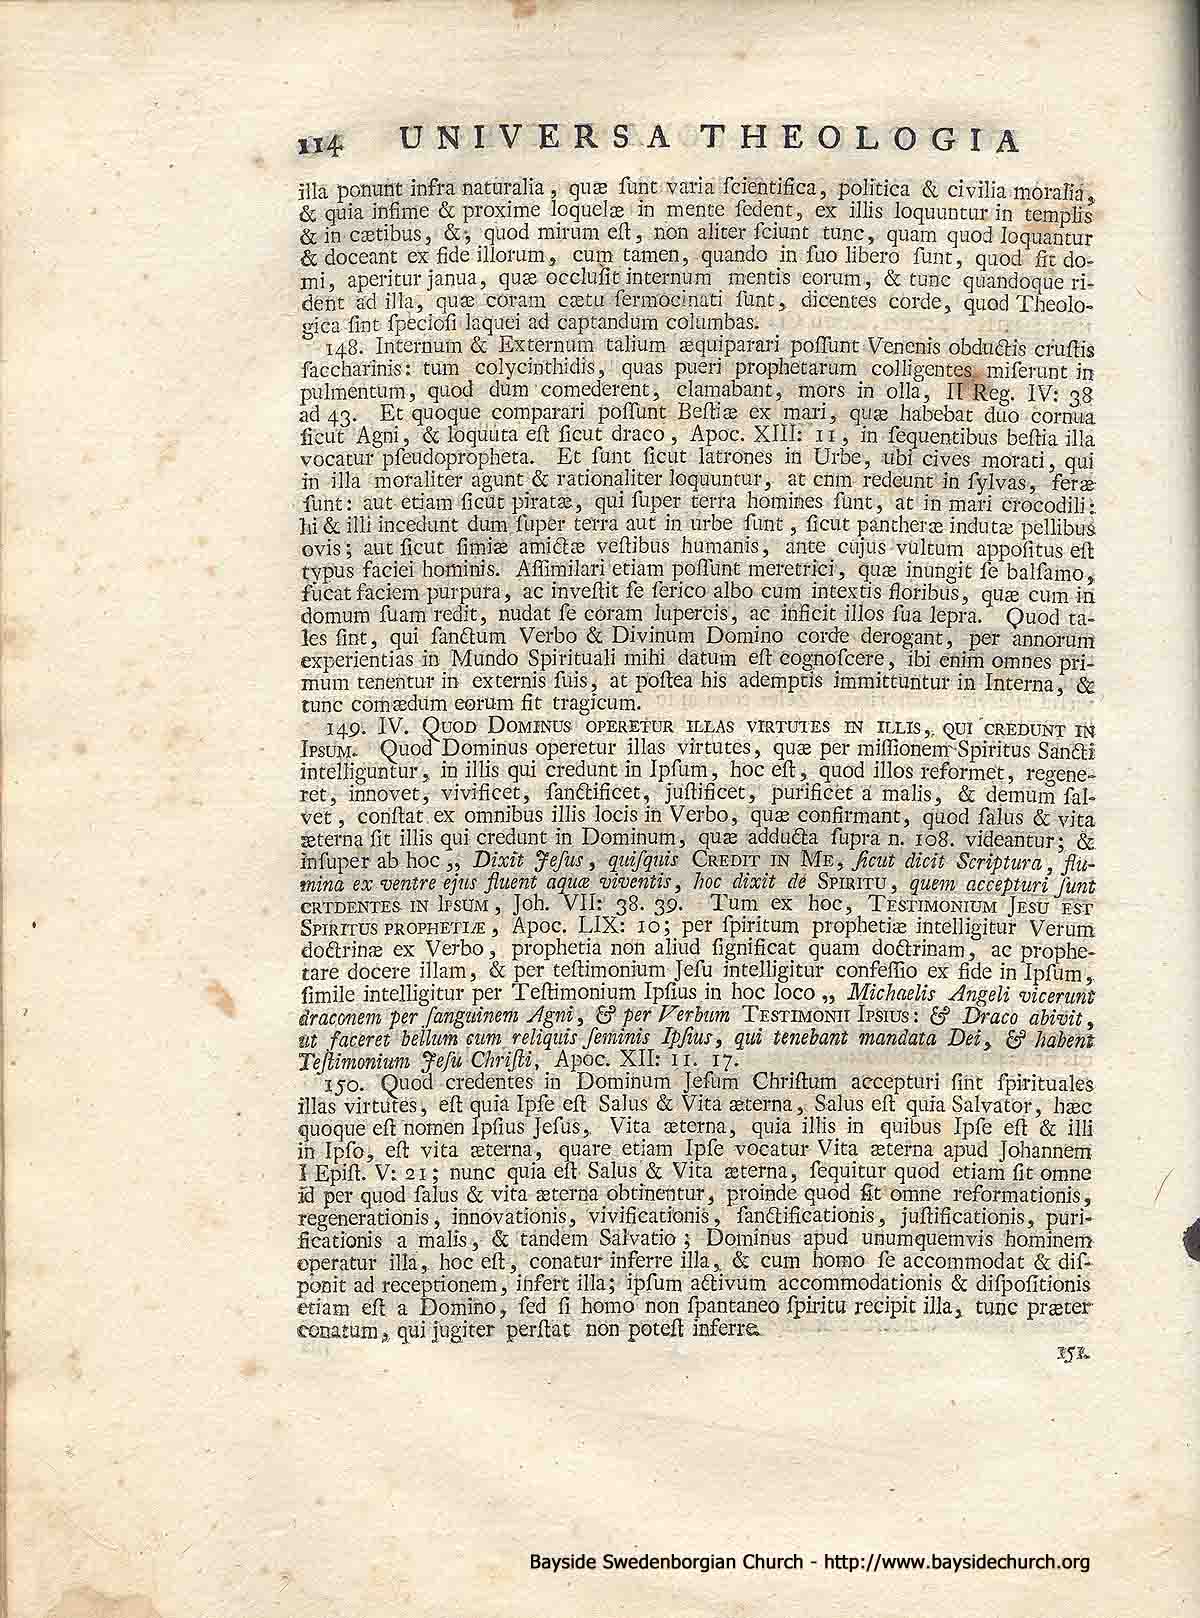 114 UNIVERSA THEOLOGIA
illa ponunt infra naturalia, quæ ſunt varia ſcientifica, politica & civilia moralia,
& quia infime & proxime loquelæ in mente ſedent, ex illis loquuntur in templis
& in cætibus, &, quod mirum eſt, non aliter ſciunt tunc, quam quod loquantur
& doceant ex fide illorum, cum tamen, quando in ſuo libero ſunt, quod fit do-
mi, aperitur janua, quæ occluſit internum mentis eorum, & tunc quandoque ri-
dent ad illa, quæ coram cætu ſermocinati ſunt, dicentes corde, quod Theolo-
gica ſint ſpecioſi laquei ad captandum columbas.
148. Internum & Externum talium æquiparari poſſunt Venenis obductis cruſtis
ſaccharinis: tum colycinthidis, quas pueri prophetarum colligentes miſerunt in
pulmentum, quod dum comederent, clamabant, mors in olla, II Reg. IV: 38
ad 43. Et quoque comparari poſſunt Beſtiæ ex mari, quæ habebat duo cornua
ſicut Agni, & loquuta eſt ſicut draco, Apoc. XIII: 11, in ſequentibus beſtia illa
vocatur pſeudopropheta. Et ſunt ſicut latrones in Urbe, ubi cives morati, qui
in illa moraliter agunt & rationaliter loquuntur, at cnm redeunt in ſylvas, feræ
ſunt: aut etiam ſicut piratæ, qui ſuper terra homines ſunt, at in mari crocodili:
hi & illi incedunt dum ſuper terra aut in urbe ſunt, ſicut pantheræ indutæ pellibus
ovis; aut ſicut ſimiæ amictæ veſtibus humanis, ante cujus vultum appoſitus eſt
typus faciei hominis. Aſſimilari etiam poſſunt meretrici, quæ inungit ſe balſamo,
fucat faciem purpura, ac inveſtit ſe ſerico albo cum intextis floribus, quæ cum in
domum ſuam redit, nudat ſe coram lupercis, ac inficit illos ſua lepra. Quod ta-
les ſint, qui ſanctum Verbo & Divinum Domino corde derogant, per annorum
experientias in Mundo Spirituali mihi datum eſt cognoſcere, ibi enim omnes pri-
mum tenentur in externis ſuis, at poſtea his ademptis immittuntur in Interna, &
tunc comædum eorum fit tragicum.
149. IV. QUOD DOMINUS OPERETUR ILLAS VIRTUTES IN ILLIS, QUI CREDUNT IN
IPSUM. Quod Dominus operetur illas virtutes, quæ per miſſionem Spiritus Sancti
intelliguntur, in illis qui credunt in Ipſum, hoc eſt, quod illos reformet, regene-
ret, innovet, vivificet, ſanctificet, juſtificet, purificet a malis, & demum ſal-
vet, conſtat ex omnibus illis locis in Verbo, quæ confirmant, quod ſalus & vita
æterna ſit illis qui credunt in Dominum, quæ adducta ſupra n. 108. videantur; &
inſuper ab hoc „ Dixit Jeſus, quiſquis CREDIT IN ME, ſicut dicit Scriptura, flu-
mina ex ventre ejus fluent aquæ viventis, hoc dixit de SPIRITU, quem accepturi ſunt
CRTDENTES IN IPSUM, Joh. VII: 38. 39. Tum ex hoc, TESTIMONIUM JESU EST
SPIRITUS PROPHETIÆ, Apoc. LIX: 10; per ſpiritum prophetiæ intelligitur Verum
doctrinæ ex Verbo, prophetia non aliud ſignificat quam doctrinam, ac prophe-
tare docere illam, & per teſtimonium Jeſu intelligitur confeſſio ex fide in Ipſum,
ſimile intelligitur per Teſtimonium Ipſius in hoc loco „ Michaelis Angeli vicerunt
draconem per ſanguinem Agni, & per Verbum TESTIMONII IPSIUS: & Draco abivit,
ut faceret bellum cum reliquis ſeminis Ipſius, qui tenebant mandata Dei, & habent
Teſtimonium Jeſu Chriſti, Apoc. XII: 11. 17.
150. Quod credentes in Dominum Jeſum Chriſtum accepturi ſint ſpirituales
illas virtutes, eſt quia Ipſe eſt Salus & Vita æterna, Salus eſt quia Salvator, hæc
quoque eſt nomen Ipſius Jeſus, Vita æterna, quia illis in quibus Ipſe eſt & illi
in Ipſo, eſt vita æterna, quare etiam Ipſe vocatur Vita æterna apud Johannem
I Epiſt. V: 21; nunc quia eſt Salus & Vita æterna, ſequitur quod etiam ſit omne
id per quod ſalus & vita æterna obtinentur, proinde quod ſit omne reformationis,
regenerationis, innovationis, vivificationis, ſanctificationis, juſtificationis, puri-
ficationis a malis, & tandem Salvatio; Dominus apud unumquemvis hominem
operatur illa, hoc eſt, conatur inferre illa, & cum homo ſe accommodat & diſ-
ponit ad receptionem, infert illa; ipſum activum accommodationis & diſpoſitionis
etiam eſt a Domino, ſed ſi homo non ſpantaneo ſpiritu recipit illa, tunc præter
conatum, qui jugiter perſtat non poteſt inferre.
151.
Bayside Swedenborgian Church - http://www.baysidechurch.org